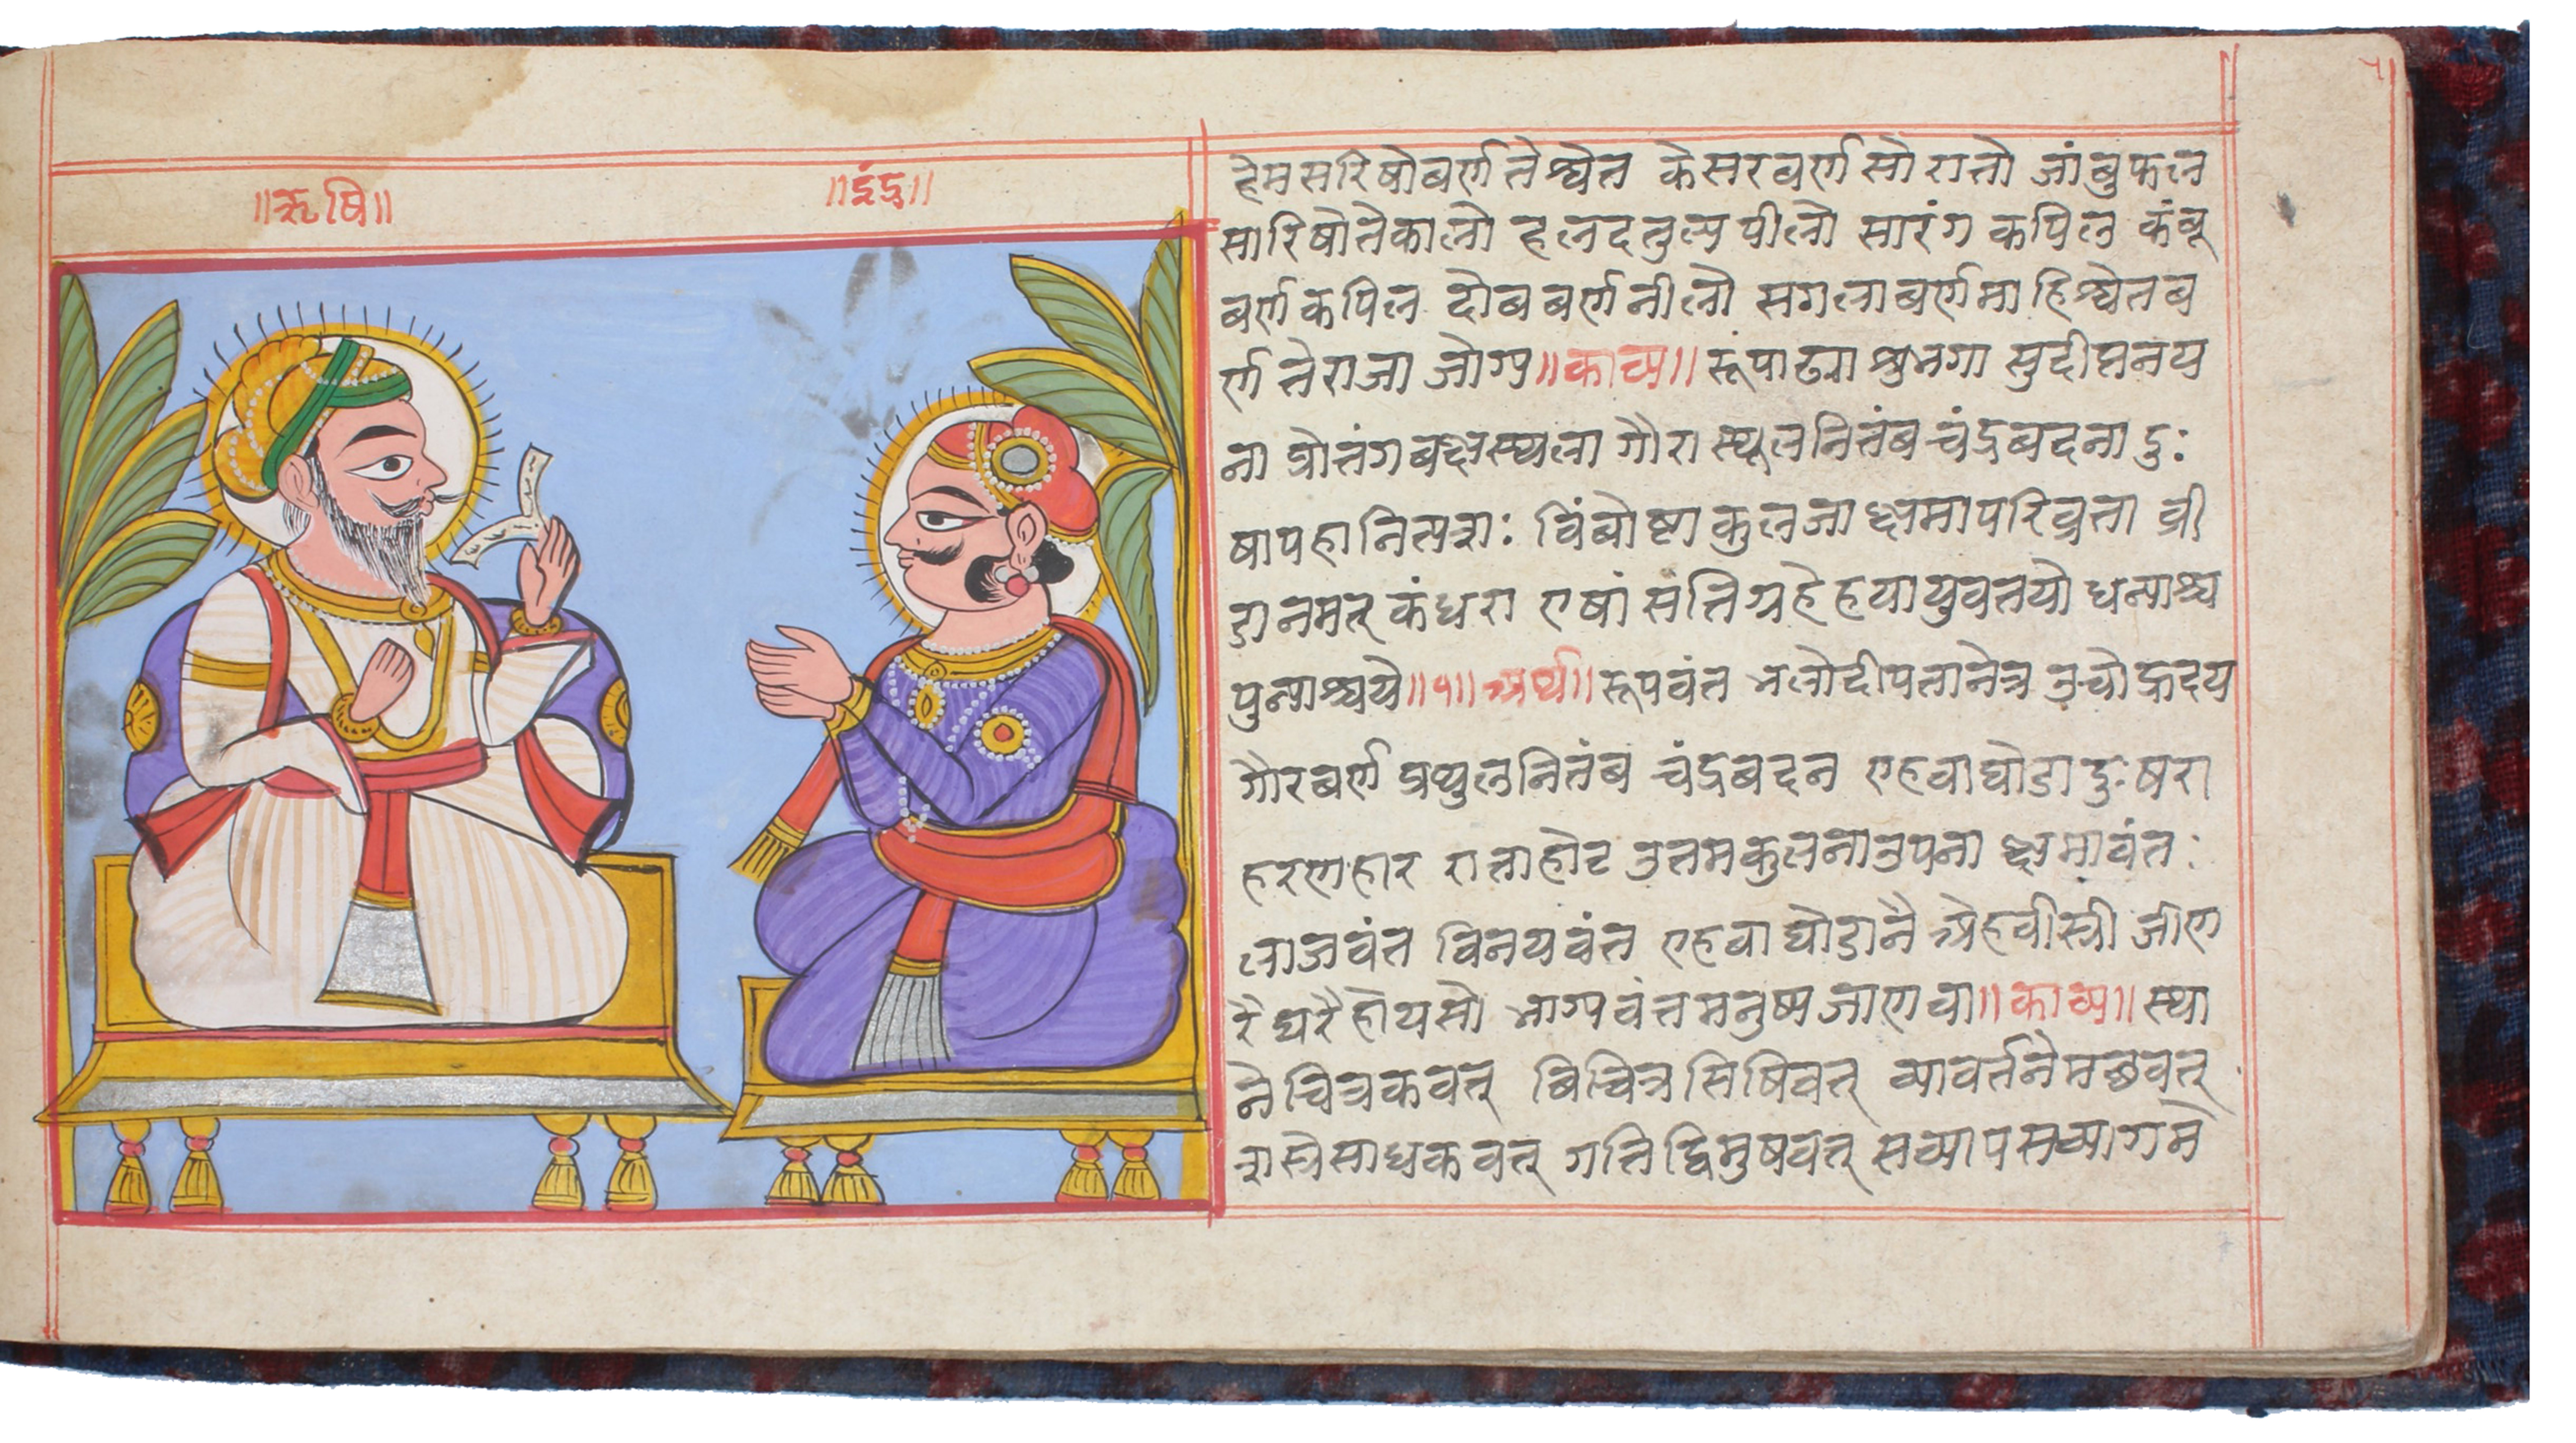 ॥ऋषि॥
॥इंद्र॥
हेमसरिषोवर्णतेश्वेत केसरवर्णसोरातो जांबुफल
सारिषोतेकालो हलदतुल्यपीलो सारंग कपिल कंबू
बर्णकपिल दोबबर्णनीलो सगलाबर्णमाहिश्वेतब
र्ण तेराजा जोग्य॥काव्य॥रूंपाढ्या शुभगा सुदीप्तनय
ना प्रोत्तंगबक्षस्थला गौरा स्थूलनितंब चंद्रबदना दुः
षापहानित्यत्राः विंबोष्टा कुलजा क्षमापरिव्रता व्री
डानमत्कंधरा एषां संतिग्रहे हयायुवतयो धन्याश्च
पुन्याश्चये॥१॥अर्थ॥रूपवंत भलोदीपतानेत्र उचोह्रदय
गौरबर्ण प्रथुलनितंब चंद्रबदन एहवाघोडा दुःषरा
हरणहार राताहोट उतमकुलनाउपना क्षमावंतः
लाजवंत विनयवंत एहवा घोडानै अेहवीस्त्री जीण
रै घरै होयसो भाग्यवंतमनुष्य जाणवा॥काव्य॥स्था
नेचित्रकवत् बिचित्रसिषिवत् व्यावर्तनेमछवत्
त्रासेसाधकवत् गतिद्विमुषवत् सव्यापसव्यागमे